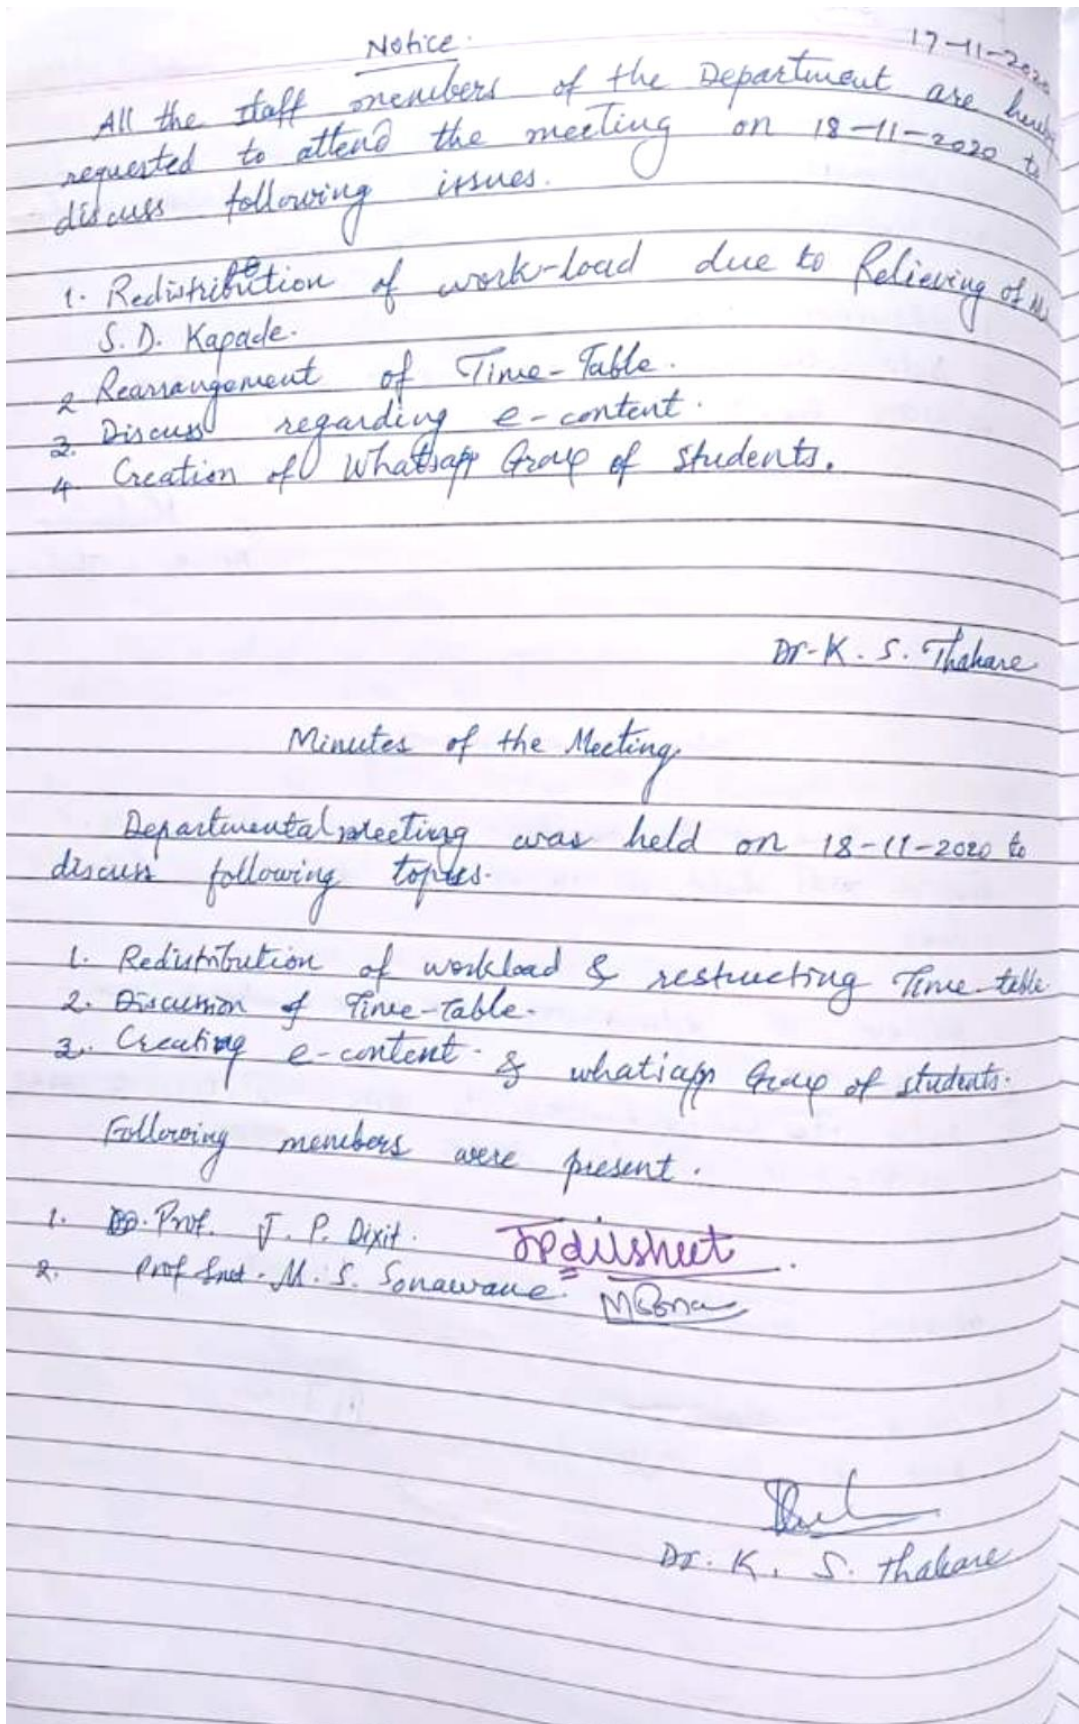 Notice.
17-11-2020
All the staff members of the Department are hereby
requested to attend the meeting on 18-11-2020 to
discuss following issues.
1. Redistribution of work-load due to Relieving of
S. D. Kapade.
2 Rearrangement of Time-Table.
3. Discuss regarding e-content.
4. Creation of Whatsapp Group of students.
Dr. K. S. Thakare
Minutes of the Meeting
Departmental meeting was held on 18-11-2020 to
discuss following topics.
1. Redistribution of workload & restructing Time-table
2. Discussion of Time-Table.
3. Creating e-content & whatsapp Group of students.
Following members were present.
1. Prof. J. P. Dixit.
2. Prof Smt. M. S. Sonawane.
Dr. K. S. Thakare